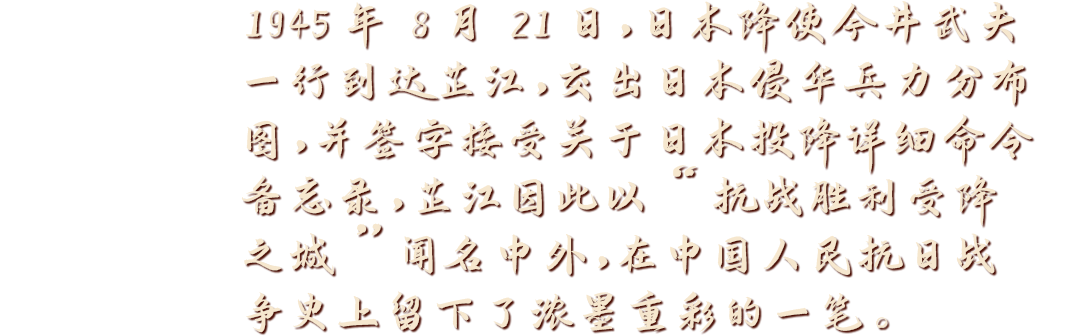 1945 年 8 月 21 日，日本降使今井武夫
一行到达芷江，交出日本侵华兵力分布
图，并签字接受关于日本投降详细命令
备忘录，芷江因此以“抗战胜利受降
之城”闻名中外，在中国人民抗日战
争史上留下了浓墨重彩的一笔。